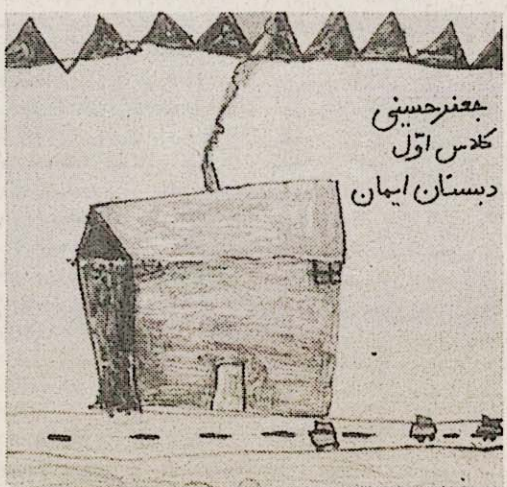 جعفر حسینی
کلاس اوّل
دبستان ایمان